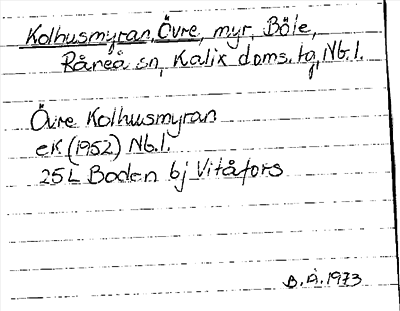 Kolhusmyran, Övre, myr, Böle,
Råneå sn, Kalix doms. tg, Nb. l.
Övre Kolhusmyran
eK (1952) Nb. l.
25 L Boden 6j Vitåfors
B. Å. 1973